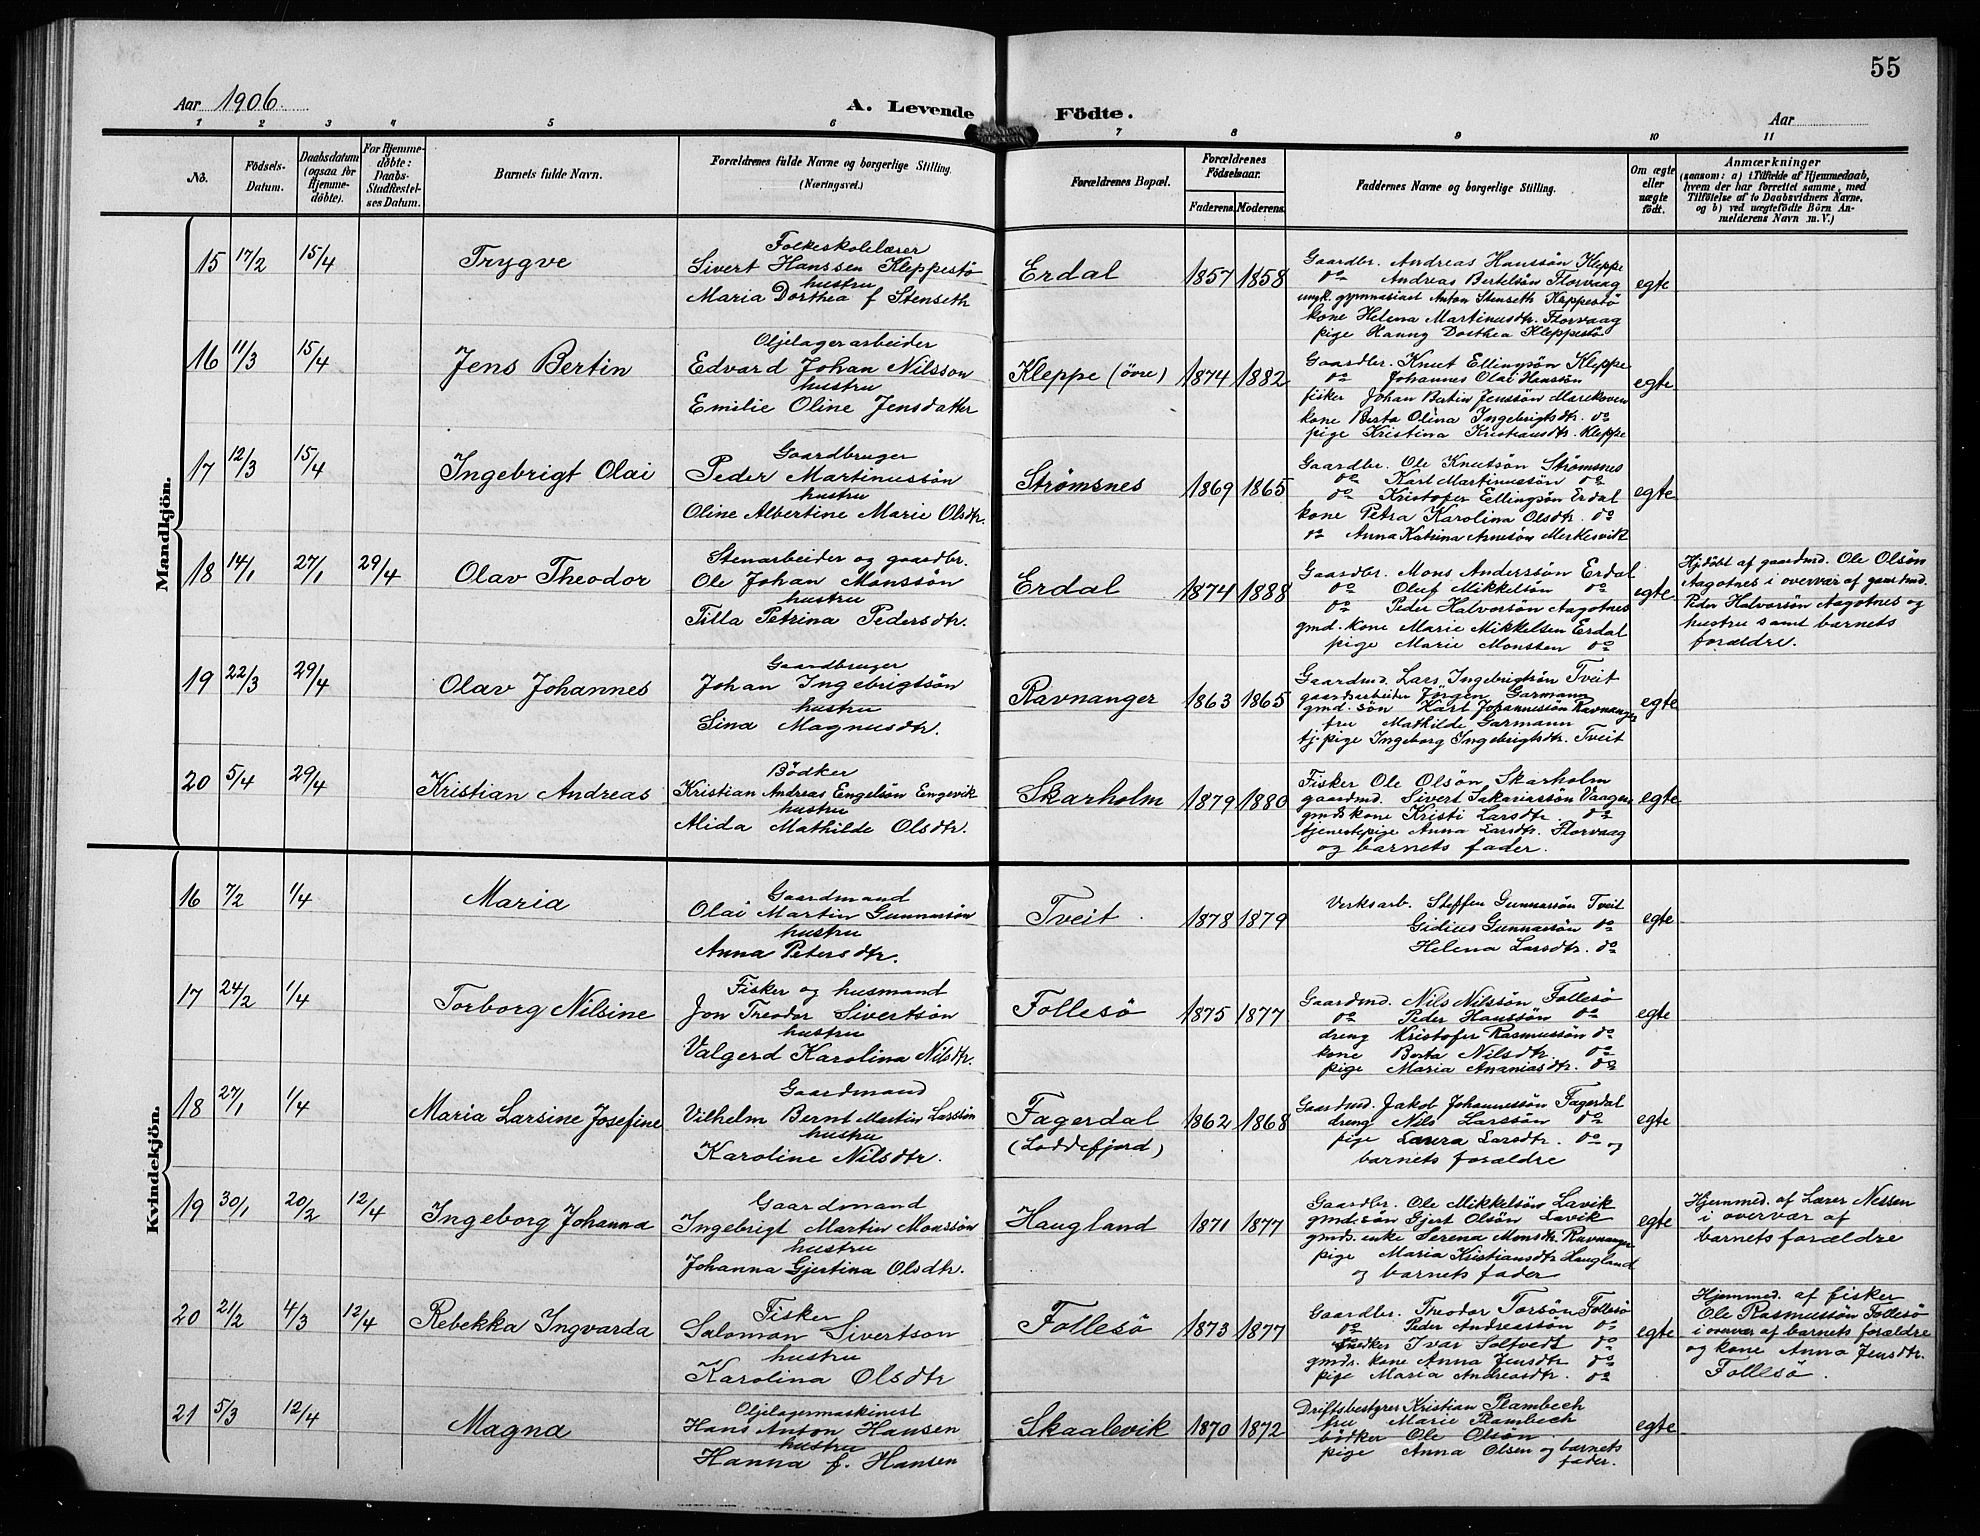 55
Aar 1906.
A. Levende Födte.
Aar
1 2 3 4 5 6 7 8 9 10 11
No.
Födsels-Datum.
Daabsdatum (ogsaa for Hjemme-döbte).
For Hjemme-döbte: Daabs-Stadfæstel-ses Datum.
Barnets fulde Navn.
Forældrenes fulde Navne og borgerlige Stilling. (Næringsvei.)
Forældrenes Bopæl.
Forældrenes Födselsaar.
Faderens. Moderens.
Faddernes Navne og borgerlige Stilling.
Om ægte eller uægte födt.
Anmærkninger
(saasom: a) i Tilfælde af Hjemmedaab,
hvem der har forrettet samme, med
Tilföielse af to Daabsvidners Navne,
og b) ved uægtefödte Börn An-
melderens Navn m. V.)
Mandkjön.
15 17/2 15/4 Trygve
Folkeskolelærer
Sivert Hanssen Kleppestö
hustru
Maria Dorthea f Stenseth
Erdal 1857 1858
Gaardbr. Andreas Hanssön Kleppe
do Andreas Bertelsön Florvaag
ungk. gymnasiast Anton Stenseth Kleppestö
kone Helena Martinusdtr. Florvaag
pige Ranny Dorthea Kleppestö
egte
16 11/3 15/4 Jens Bertin
Oljelagerarbeider
Edvard Johan Nilsson
hustru
Emilie Oline Jensdatter
Kleppe (övre) 1874 1882
Gaardbr. Knut Ellingsön Kleppe
do Johannes Olai Hanssön
fisker Johan Bertin Jenssön Marekoven
kone Berta Olina Ingebrigtsdtr. do
pige Kristina Kristiansdtr. Kleppe
egte
17 12/3 15/4 Ingebrigt Olai
Gaardbruger
Peder Martinussön
hustru
Oline Albertine Marie Olsdtr.
Strømsnes 1869 1865
Gaardbr. Ole Knutsön Strømsnes
do Karl Martinussön do
do Kristofer Ellingsön Erdal
kone Petra Karolina Olsdtr. do
do Anna Katrina Arnesön Merkesvik
egte
18 14/1 27/1 29/4 Olav Theodor
Stenarbeider og gaardbr.
Ole Johan Monssön
hustru
Tilla Petrina Pedersdtr.
Erdal 1874 1888
Gaardbr. Mons Anderssön Erdal
do Oluf Mikkelsön do
do Peder Halvorsön Aagotnes
gmd. kone Marie Mikkelsen Erdal
pige Marie Monssen do
egte
Hjdöbt af gaardmd. Ole Olsön
Aagotnes i overvær af gaardmd.
Peder Halvorsön Aagotnes og
hustru samt barnets
forældre.
19 22/3 29/4 Olav Johannes
Gaardbruger
Johan Ingebrigtsön
hustru
Sina Magnusdtr.
Ravnanger 1863 1865
Gaardmd. Lars Ingebrigtsön Tveit
gaardsarbeider Jörgen Garmann
gmd. sön Karl Johannessön Ravnanger
fru Mathilde Garmann
tj. pige Ingeborg Ingebrigtsdtr. Tveit
egte
20 5/4 29/4 Kristian Andreas
Bödker
Kristian Andreas Engelsön Engevik
hustru
Alida Mathilde Olsdtr.
Skarholm 1879 1880
Fisker Ole Olsön Skarholm
gaardmd. Sivert Sakariassön Vaagen
gmds kone Kristi Larsdtr. do
tjenestepige Anna Larsdtr. Florvaag
og barnets fader.
egte
Kvindekjön.
16 7/2 1/4 Maria
Gaardmand
Olai Martin Gunnarsön
hustru
Anna Petersdtr.
Tveit 1878 1879
Verksarb. Steffen Gunnarsön Tveit
Gidius Gunnarsön do
Helena Larsdtr. do
egte
17 24/2 1/4 Torborg Nilsine
Fisker og husmand
Jon Theodor Sivertsön
hustru
Valgerd Karolina Nilsdtr.
Follesö 1875 1877
Gaardmd. Nils Nilssön Follesö
do Peder Hanssön do
dreng Kristofer Rasmussön do
kone Berta Nilsdtr. do
pige Maria Ananiasdtr. do
egte
18 27/1 1/4 Maria Larsine Josefine
Gaardmand
Vilhelm Bernt Martin Larssön
hustru
Karoline Nilsdtr.
Fagerdal
(Loddefjord)
1862 1868
Gaardmd. Jakob Johannessön Fagerdal
dreng Nils Larssön do
pige Laura Larsdtr. do og
barnets forældre
egte
19 30/1 20/2 12/4 Ingeborg Johanna
Gaardmand
Ingebrigt Martin Monssön
hustru
Johanna Gjertina Olsdtr.
Haugland 1871 1877
Gaardbr. Ole Mikkelsön Lavik
gmd. sön Gjert Olsön Lavik
gmds. enke Serena Monsdtr Ravnanger
pige Maria Kristiansdtr Haugland
og barnets fader
egte
Hjemmed. af Lærer Nessen
i overvær af
barnets forældre
20 21/2 4/3 12/4 Rebekka Ingvarda
Fisker
Salomon Sivertson
hustru
Karolina Olsdtr
Follesö 1873 1877
Gaardbr. Theodor Torsön Follesö
do Peder Andreassön do
Snedker Ivar Soltvedt do
gmds. kone Anna Jensdtr do
pige Maria Andreasdtr. do
egte
Hjemmed. af fisker
Ole Rasmussön Follesö
i overvær af barnets forældre
og kone Anna Jensdtr.
Follesö.
21 5/3 12/4 Magna
Oljelagermaskinist
Hans Anton Hansen
hustru
Hanna f. Hansen
Skaalevik 1870 1872
Driftsbestyrer Kristian Plambech
fru Marie Plambech
bödker Ole Olsön
pige Anna Olsen og barnets
fader.
egte